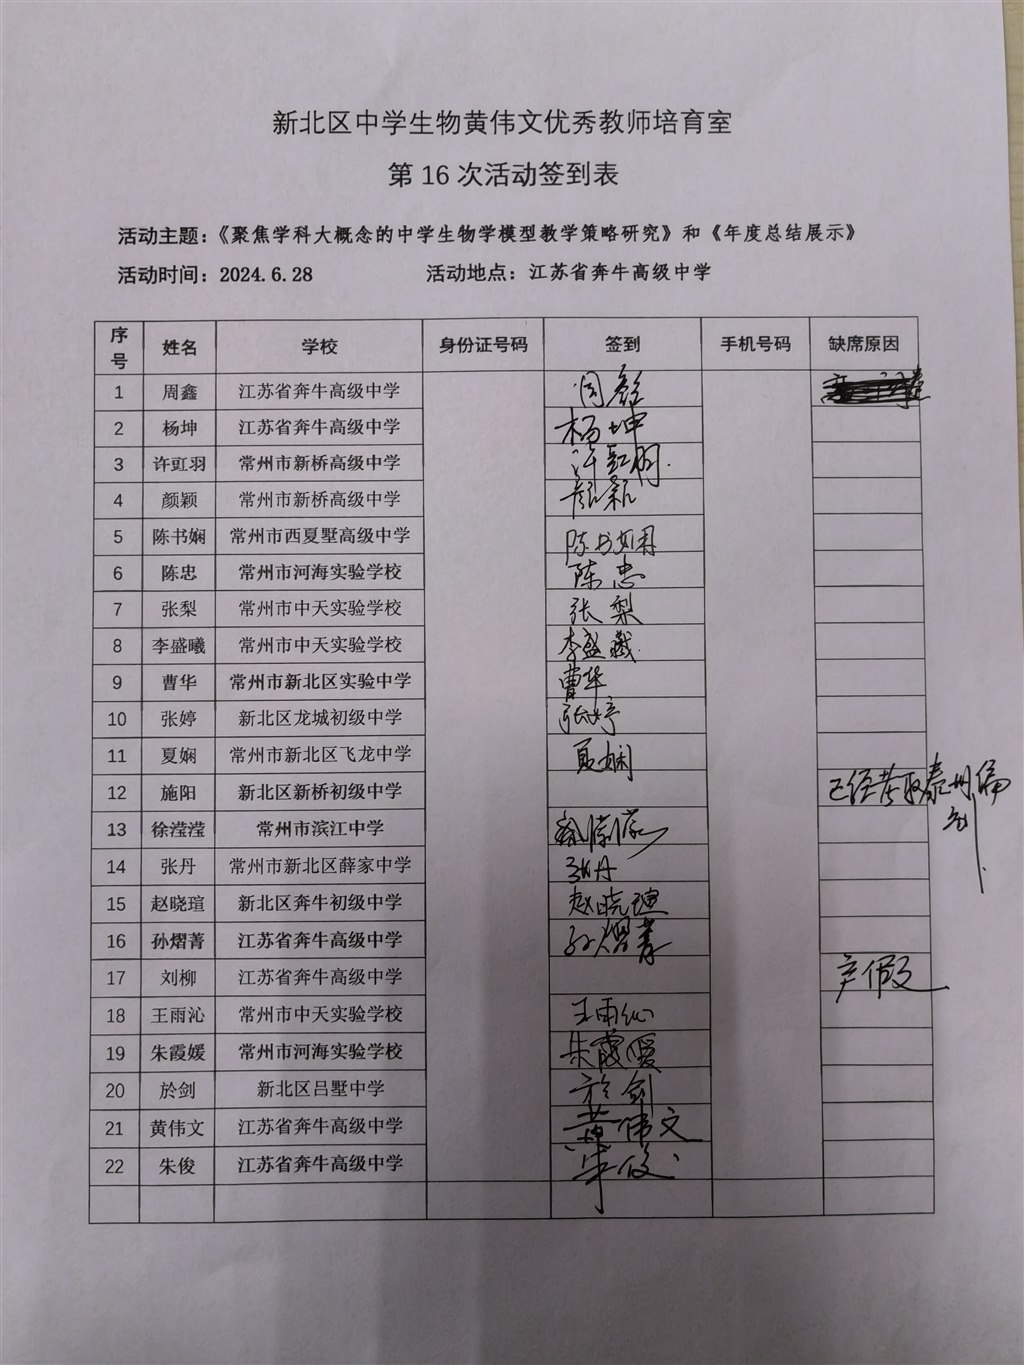 新北区中学生物黄伟文优秀教师培育室
第 16 次活动签到表
活动主题：《聚焦学科大概念的中学生物学模型教学策略研究》和《年度总结展示》
活动时间：2024.6.28 活动地点：江苏省奔牛高级中学
序号 姓名 学校 身份证号码 签到 手机号码 缺席原因
1 周鑫 江苏省奔牛高级中学 周鑫
2 杨坤 江苏省奔牛高级中学 杨坤
3 许豇羽 常州市新桥高级中学 许豇羽
4 颜颖 常州市新桥高级中学 颜颖
5 陈书娴 常州市西夏墅高级中学 陈书娴
6 陈忠 常州市河海实验学校 陈忠
7 张梨 常州市中天实验学校 张梨
8 李盛曦 常州市中天实验学校 李盛曦
9 曹华 常州市新北区实验中学 曹华
10 张婷 新北区龙城初级中学 张婷
11 夏娴 常州市新北区飞龙中学 夏娴
12 施阳 新北区新桥初级中学 已经考取泰州编制
13 徐滢滢 常州市滨江中学 徐滢滢
14 张丹 常州市新北区薛家中学 张丹
15 赵晓瑄 新北区奔牛初级中学 赵晓瑄
16 孙熠菁 江苏省奔牛高级中学 孙熠菁
17 刘柳 江苏省奔牛高级中学 产假
18 王雨沁 常州市中天实验学校 王雨沁
19 朱霞媛 常州市河海实验学校 朱霞媛
20 於剑 新北区吕墅中学 於剑
21 黄伟文 江苏省奔牛高级中学 黄伟文
22 朱俊 江苏省奔牛高级中学 朱俊